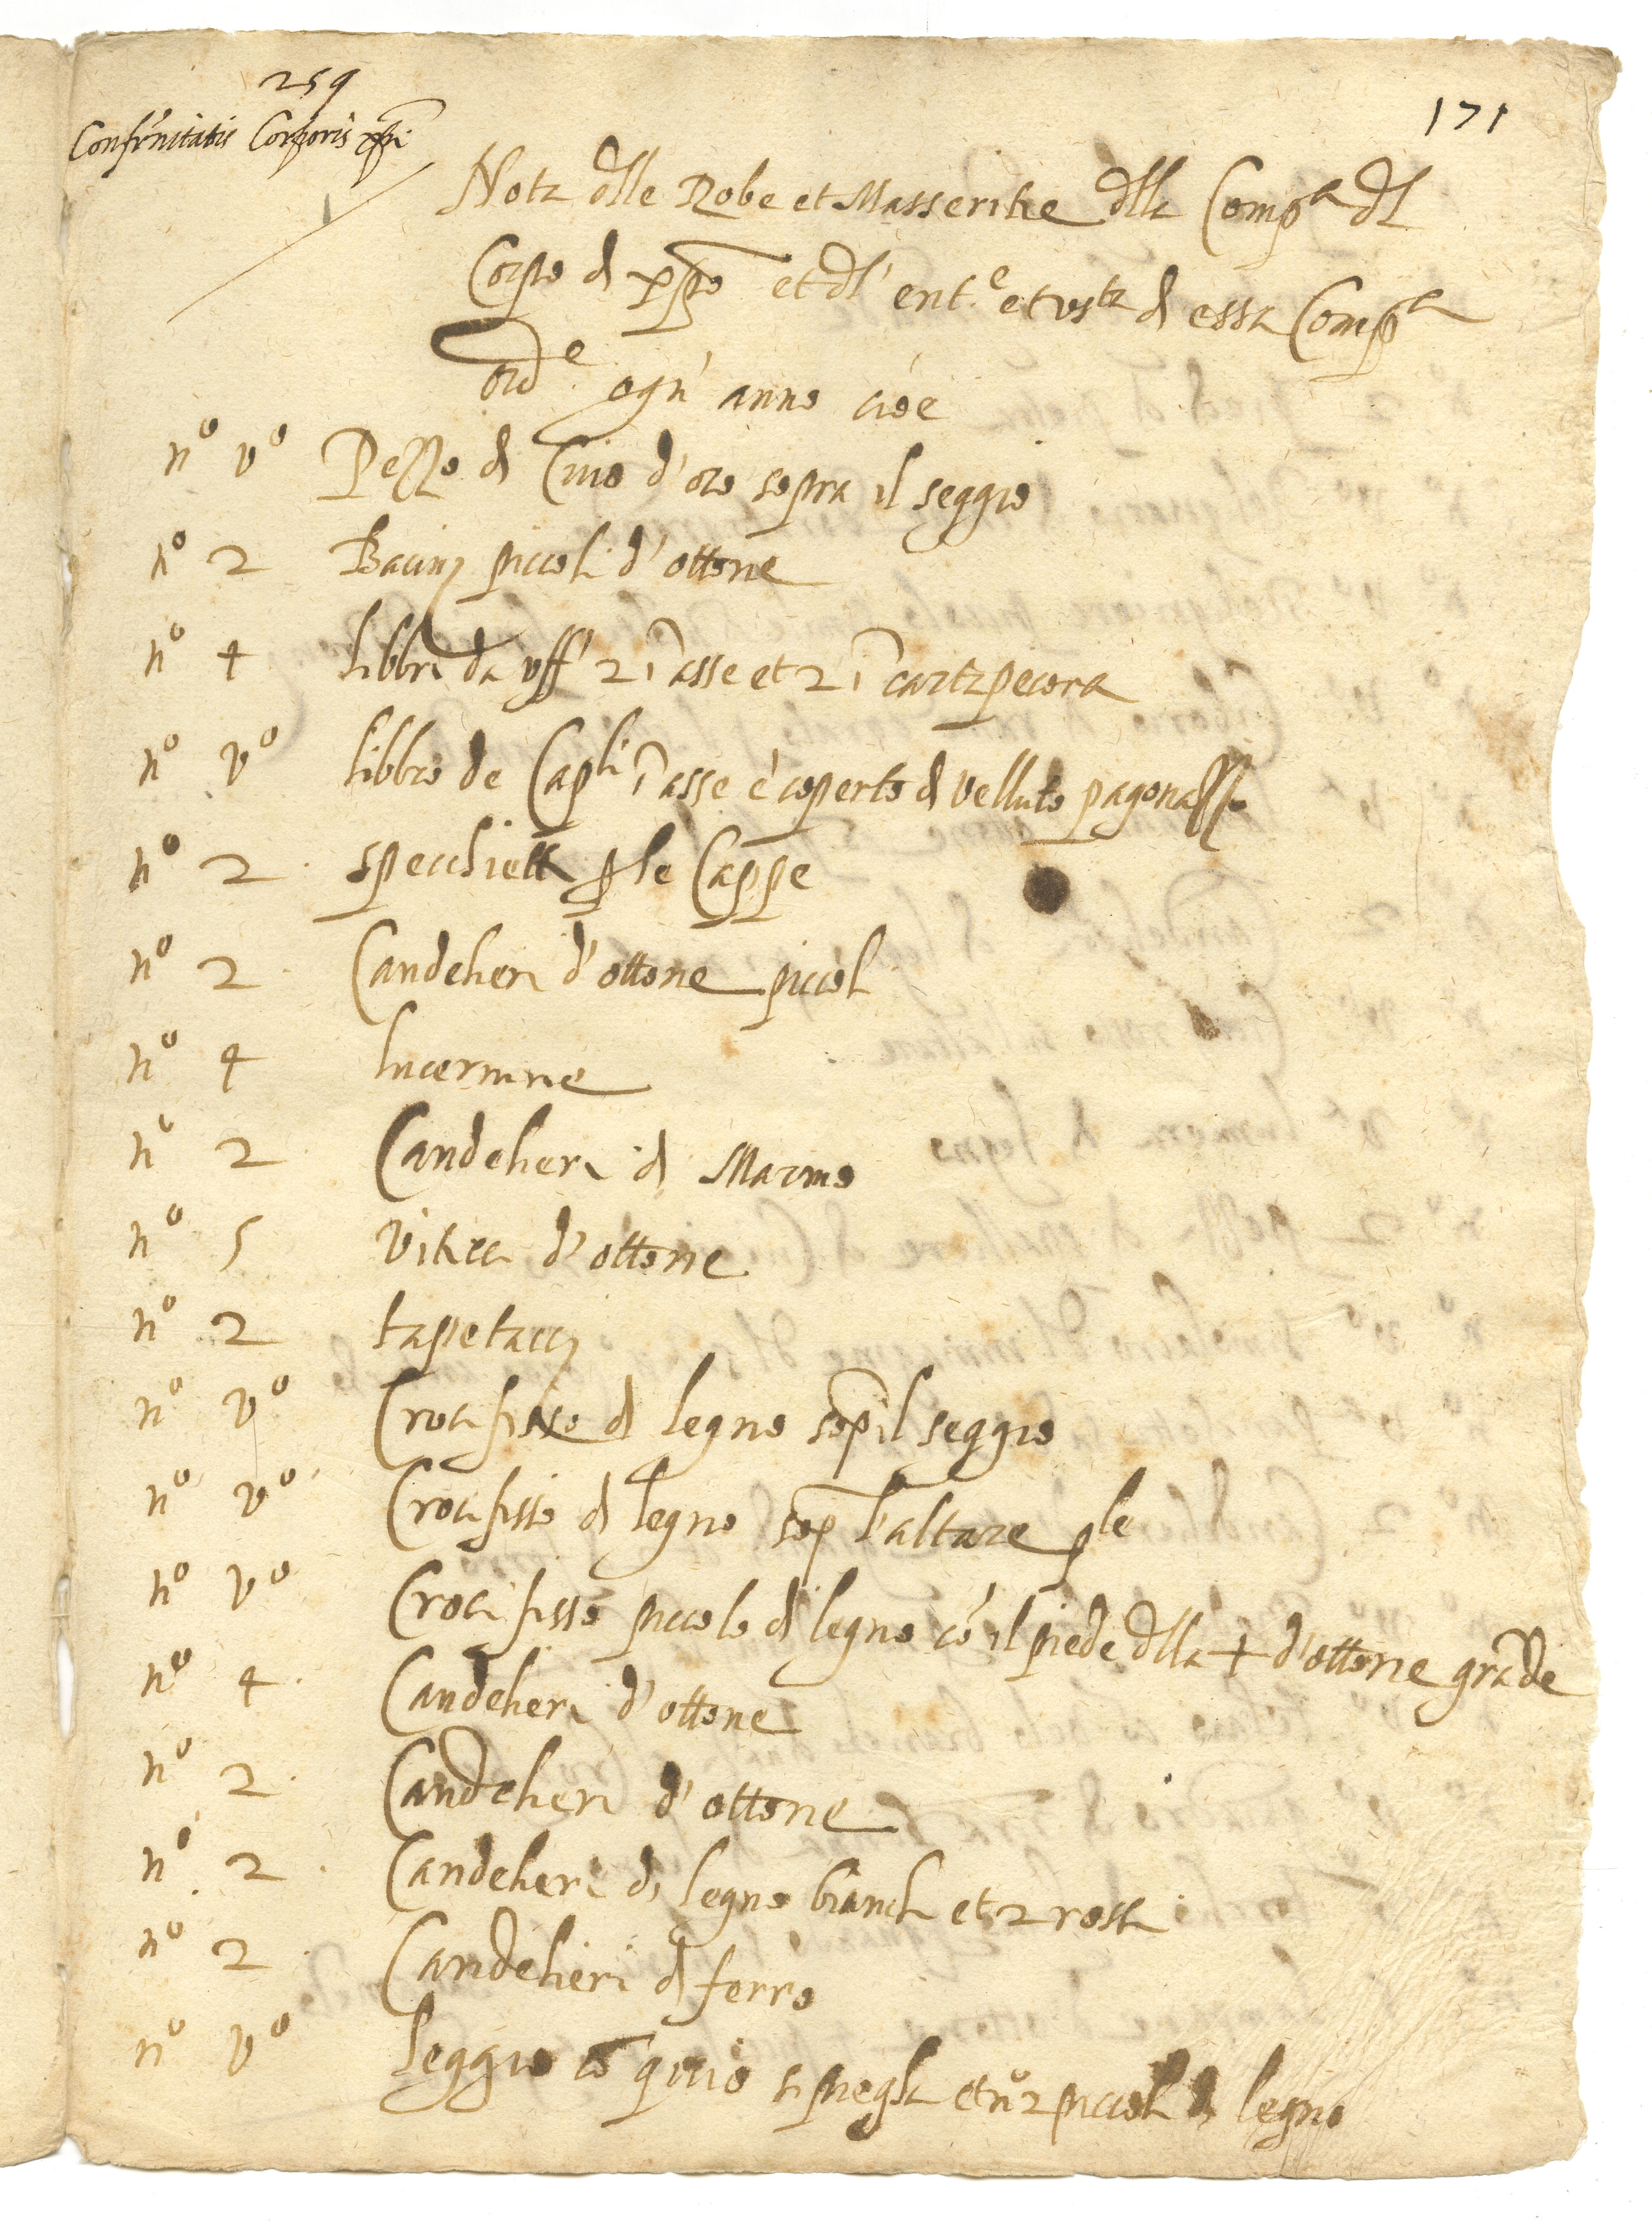 259
171
Confr̃nitatis Corporis xp̃i
Nota dlle Robe et Masseritie dlla Compa dl
Corpo di xp̃o et dl' ent.e et usta di essa Compa
orde ogn' anno cioè
no vo Pezzo di Cuio d'oro sopra il seggio
no 2 Bacinj piccoli d'ottone
no 4 libbri da uff' 2 ĩ asse et 2 ĩ cartapecora
no vo libbro de Capli ĩ asse è coperto di velluto pagonazzo
no 2 specchietti p le Cappe
no 2 Candelieri d'ottone piccoli
no 4 lucernine
no 2 Candelieri di Marmo
no 5 viticci d'ottone
no 2 tapetaccj
no vo Crocifisso di legno sop̃ il seggio
no vo Crocifisso di legno sop̃ l'altare ple
no vo Crocifisso piccolo di legno cõ il piede dlla + d'ottone grãde
no 4 Candelieri d'ottone
no 2 Candelieri d'ottone
no 2 Candelieri di legno bianchi et 2 rossi
no 2 Candelieri di ferro
no vo leggio cõ si piegha et no 2 piccoli di legno